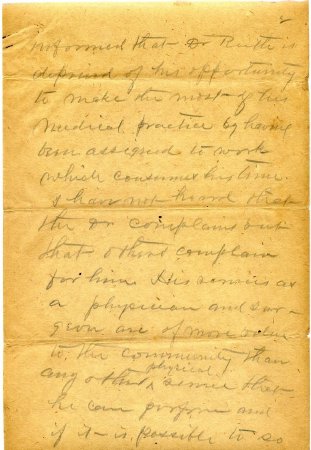 2
informed that Dr Ruth is
deprived of his opportunity
to make the most of his
Medical practice by having
been assigned to work
which consumes his time.
I have not heard that
the Dr complains but
that others complain
for him. His services as
a physician and sur-
geon are of more value
to the community than
any other physical service that
he can perform and
if it is possible to so